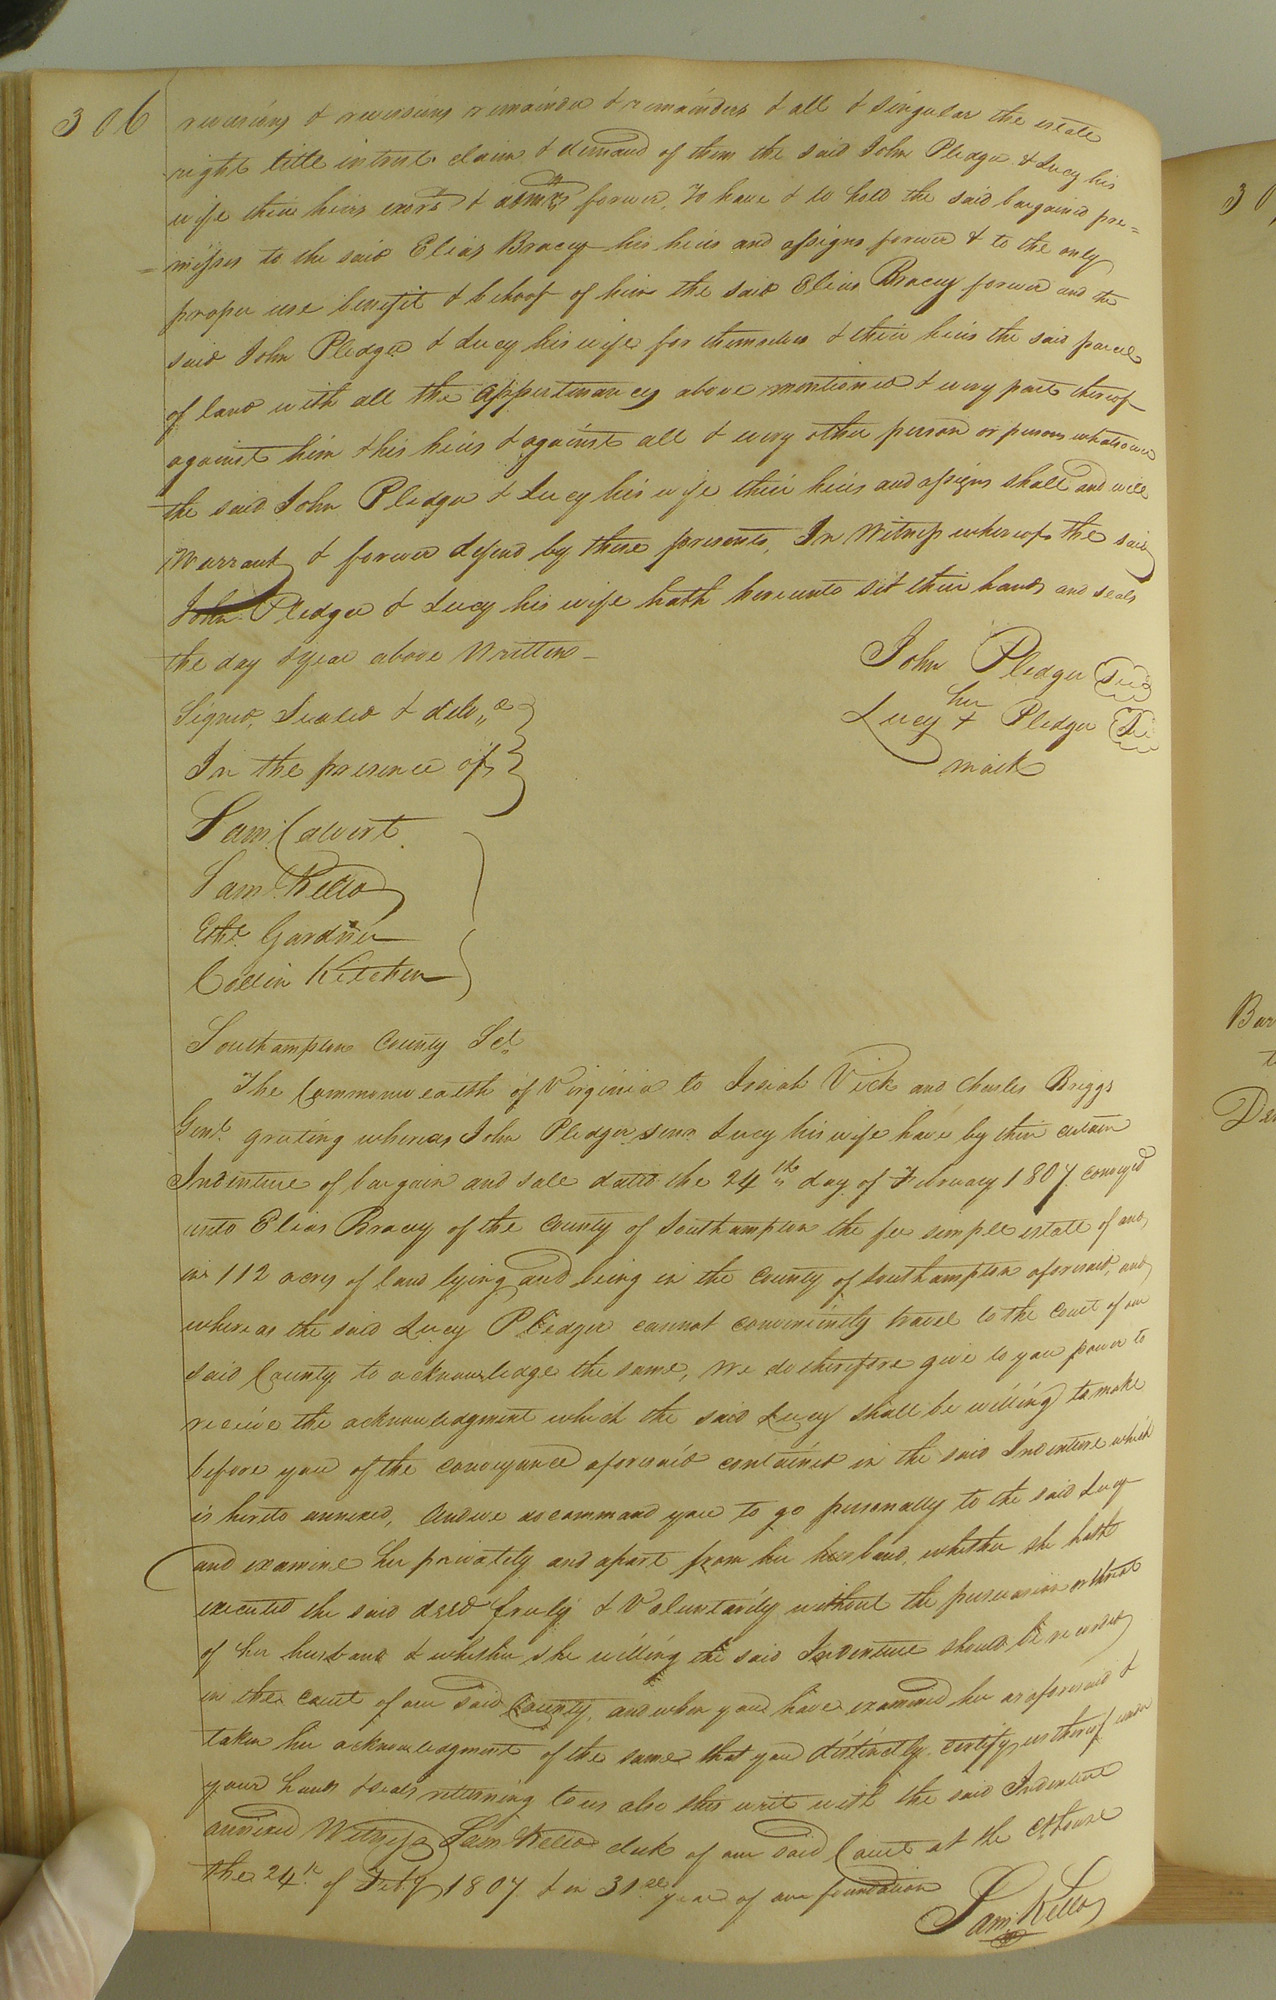 306
reversions & reversions remainder & remainders & all & singular the estate
right title intrest claim & demand of them the said John Pledger & Lucy his
wife their heirs exors & admrs forever, To have & to hold the said bargained pre=
=misses to the said Elias Bracey his heirs and assigns forever & to the only
proper use benefit & behoof of him the said Elias Bracey forever and the
said John Pledger & Lucy his wife for themselves & their heirs the said parcel
of land with all the appertinancy above mentioned & every part thereof
against him & his heirs & against all & every other person or persons whatsoever
the said John Pledger & Lucy his wife their heirs and assigns shall and will
Warrant & forever defend by these presents, In Witness whereof the said
John Pledger & Lucy his wife hath hereunto set their hands and seals
the day & year above Written
John Pledger
Signed, Sealed & deld
her
Lucy + Pledger
In the presence of
mark
Sam: Calvert
Sam: Kello
Ethd. Gardner
Collin Kitchen
Southampton County Sct.
The Commonwealth of Virginia to Josiah Vick and Charles Briggs
Gent. greeting whereas John Pledger senr. Lucy his wife have by their certain
Indenture of bargain and sale dated the 24th day of February 1807 conveyed
unto Elias Bracey of the County of Southampton the fee simple estate of and
in 112 acres of land lying and being in the County of Southampton aforesaid, and
whereas the said Lucy Pledger cannot conviniently travel to the Court of our
said County to acknowledge the same, We do therefore give to you power to
receive the acknowledgment which the said Lucy shall be willing to make
before you of the conveyance aforesaid contained in the said Indenture which
is hereto annexed, and we do command you to go personally to the said Lucy
and examine her privately and apart from her husband, whether she hath
executed the said deed fruly & Voluntarily without the persuasion or threat
of her husband & whether she willing the said Indenture should be recorded
in the Court of our said County, and when you have examined her as aforesaid &
taken her acknowledgment of the same that you distinctly certify us thereof under
your hands & seals returning to us also this writ with the said Indenture
annexed Witness Sam: Kello clerk of our said Court at the Cthouse
the 24th of Feby 1807 & in 31st year of our foundation
Sam: Kello
30
Bar
t
De